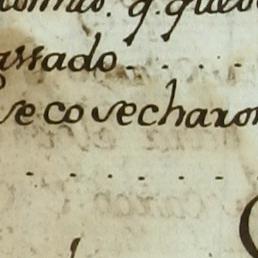 q. quedo
assado . . . . .
se cosecharon
. . . . . . .